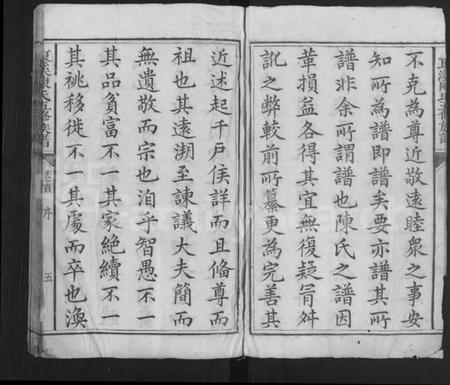 不克為尊近敬遠睦衆之事安
知所為譜即譜矣要亦譜其所
譜非余所謂譜也陳氏之譜因
革損益各得其宜無復疑冐舛
訛之弊較前所篡更為完善其
近述起千戶侯詳而且偹尊而
祖也其遠溯至諫議大夫簡而
無遺敬而宗也洎乎智愚不一
其品貧富不一其家絶續不一
其祧移徙不一其處而卒也渙
卷首 序
五